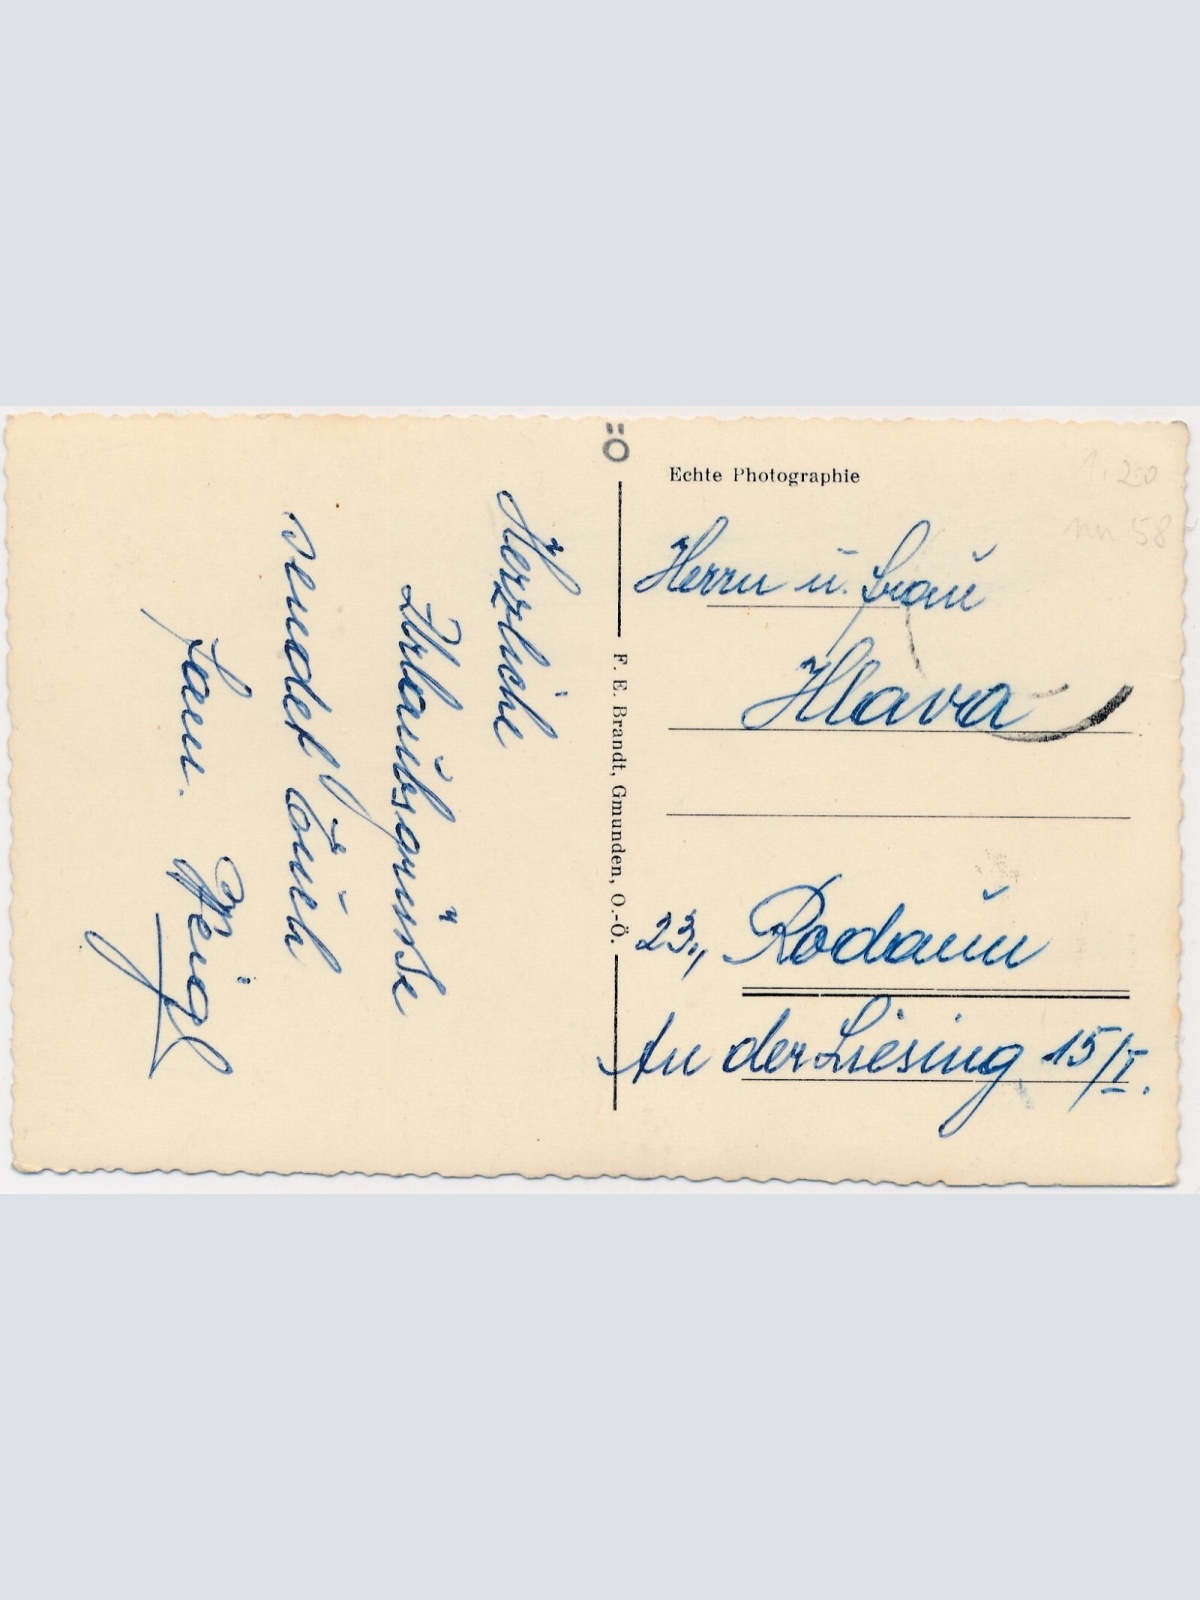 Herzliche
Urlaubsgrüsse
sendet Euch
Fam. Weigl
ö
F. E. Brandt, Gmunden, O.-Ö.
Echte Photographie
1.20
58
Herrn u. Frau
Hlava
23., Rodaun
An der Liesing 15/I.